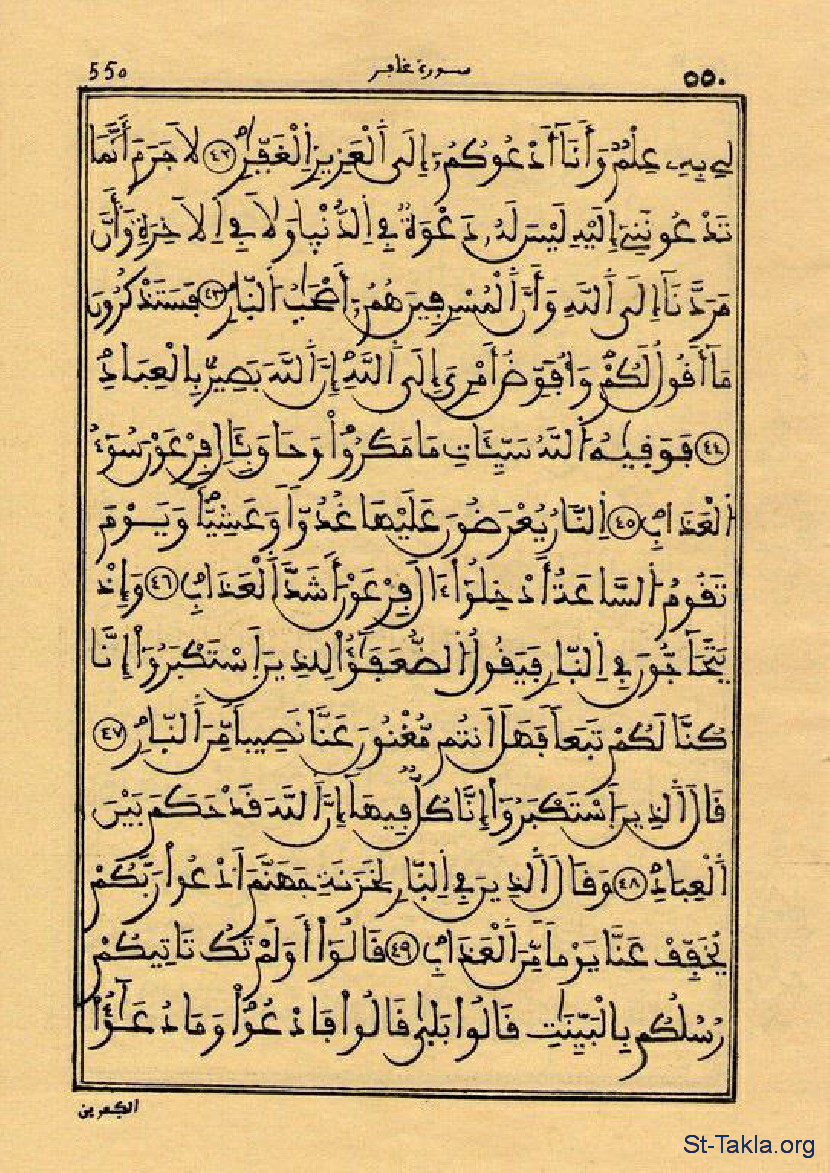 550 سورة غافر ٥٥٠
لِے بِهِۦ عِلْمٞ وَأَنَآ أَدْعُوكُمُۥٓ إِلَى اَ۬لْعَزِيزِ اِ۬لْغَفّٰ۪رِۖ ٤٢ لَا جَرَمَ أَنَّمَا
تَدْعُونَنِےٓ إِلَيْهِ لَيْسَ لَهُۥ دَعْوَةٞ فِے اِ۬لدُّنْي۪ا وَلَا فِے اِ۬لَاخِرَةِ وَأَنَّ
مَرَدَّنَآ إِلَى اَ۬للَّهِ وَأَنَّ اَ۬لْمُسْرِفِينَ هُمُۥٓ أَصْحَٰبُ اُ۬لنّ۪ارِۖ ٤٣ فَسَتَذْكُرُونَ
مَآ أَقُولُ لَكُمْۖ وَأُفَوِّضُ أَمْرِيَ إِلَى اَ۬للَّهِۖ إِنَّ اَ۬للَّهَ بَصِيرُۢ بِالْعِبَادِۖ
٤٤ فَوَق۪يٰهُ اُ۬للَّهُ سَيِّـَٔاتِ مَا مَكَرُواْۖ وَحَاقَ بِـَٔالِ فِرْعَوْنَ سُوٓءُ
اُ۬لْعَذَابِۖ ٤٥ اِ۬لنَّارُ يُعْرَضُونَ عَلَيْهَا غُدُوّاٗ وَعَشِيّاٗۖ وَيَوْمَ
تَقُومُ اُ۬لسَّاعَةُ أَدْخِلُوٓاْ ءَالَ فِرْعَوْنَ أَشَدَّ اَ۬لْعَذَابِۖ ٤٦ وَإِذْ
يَتَحَآجُّونَ فِے اِ۬لنّ۪ارِ فَيَقُولُ اُ۬لضُّعَفَٰٓؤُاْ لِلذِينَ اَ۪سْتَكْبَرُوٓاْ إِنَّا
كُنَّا لَكُمْ تَبَعاٗ فَهَلَ اَنتُم مُّغْنُونَ عَنَّا نَصِيباٗ مِّنَ اَ۬لنّ۪ارِۖ ٤٧
قَالَ اَ۬لذِينَ اَ۪سْتَكْبَرُوٓاْ إِنَّا كُلّٞ فِيهَآ إِنَّ اَ۬للَّهَ قَدْ حَكَمَ بَيْنَ
اَ۬لْعِبَادِۖ ٤٨ وَقَالَ اَ۬لذِينَ فِے اِ۬لنّ۪ارِ لِخَزَنَةِ جَهَنَّمَ اَ۟دْعُواْ رَبَّكُمْ
يُخَفِّفْ عَنَّا يَوْماٗ مِّنَ اَ۬لْعَذَابِۖ ٤٩ قَالُوٓاْ أَوَلَمْ تَكُ تَاتِيكُمْ
رُسُلُكُم بِالْبَيِّنَٰتِۖ قَالُواْ بَل۪يٰۖ قَالُواْ فَادْعُواْۖ وَمَا دُعَٰٓؤُاْ
الكٰفرين
St-Takla.org